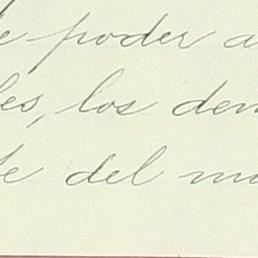 e poder a
les, los dem
te del me